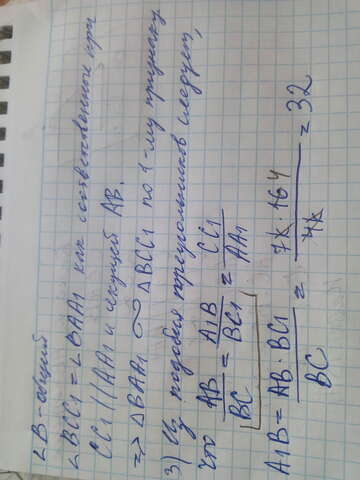 ∠B - общий
∠BCC₁ = ∠BAA₁ как соответственные при
CC₁ || AA₁ и секущей AB.
=> ΔBAA₁ ∞ ΔBCC₁ по 1-му признаку
3) Из подобия треугольников следует,
что AB/BC = A₁B/BC₁ = CC₁/AA₁
A₁B = AB · BC₁/BC = 7k · 164/4k = 32